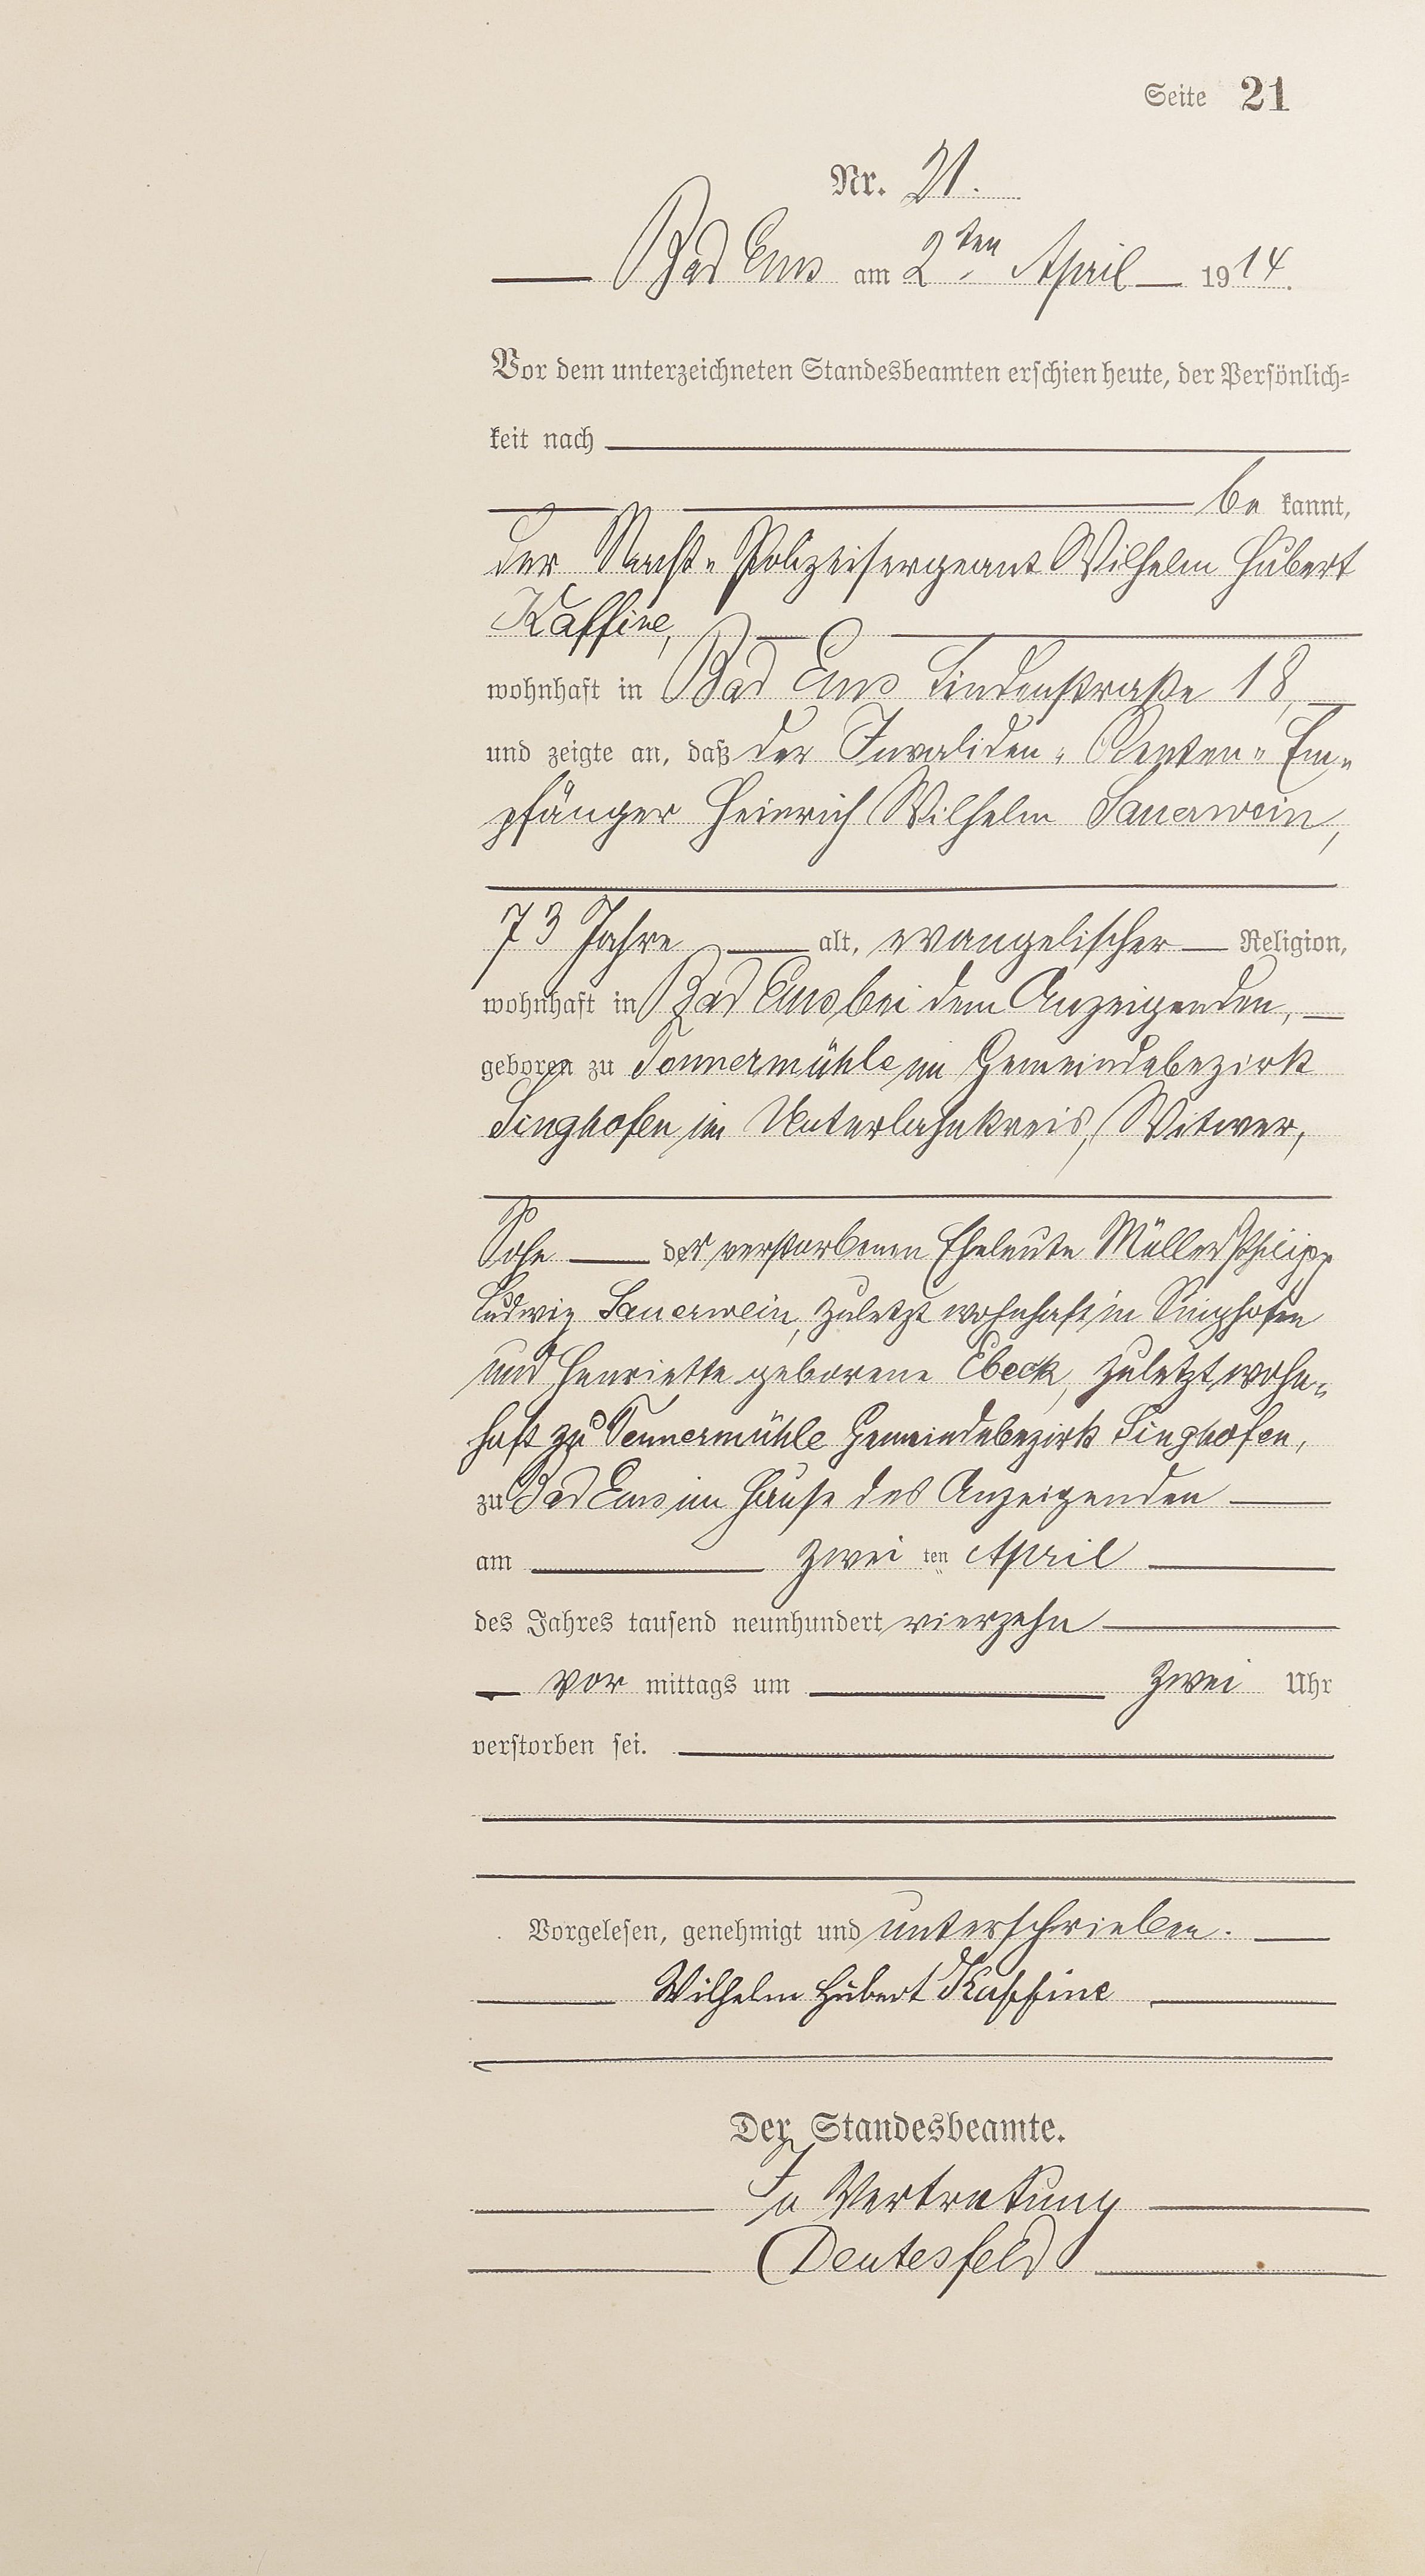 Seite 21
Nr. 21.
Bad Ems am 2ten April 1914.
Vor dem unterzeichneten Standesbeamten erschien heute, der Persönlich=
keit nach
be kannt,
der Nacht-Polizeisergeant Wilhelm Hubert
Kaffine,
wohnhaft in Bad Ems Lindenstraße 18,
und zeigte an, daß der Invaliden-Renten-Em-
pfänger Heinrich Wilhelm Sauerwein,
73 Jahre alt, evangelischer Religion,
wohnhaft in Bad Ems bei dem Anzeigenden,
geboren zu Tennermühle im Gemeindebezirk
Singhofen im Unterlahnkreis, Witwer,
Sohn der verstorbenen Eheleute Müller Philipp
Ludwig Sauerwein, zuletzt wohnhaft in Singhofen
und Henriette geborene Ebeck, zuletzt wohn-
haft zu Tennermühle Gemeindebezirk Singhofen,
zu Bad Ems im Hause des Anzeigenden
am zwei ten April
des Jahres tausend neunhundert vierzehn
vor mittags um zwei Uhr
verstorben sei.
Vorgelesen, genehmigt und unterschrieben.
Wilhelm Hubert Kaffine
Der Standesbeamte.
In Vertretung
Deutesfeld